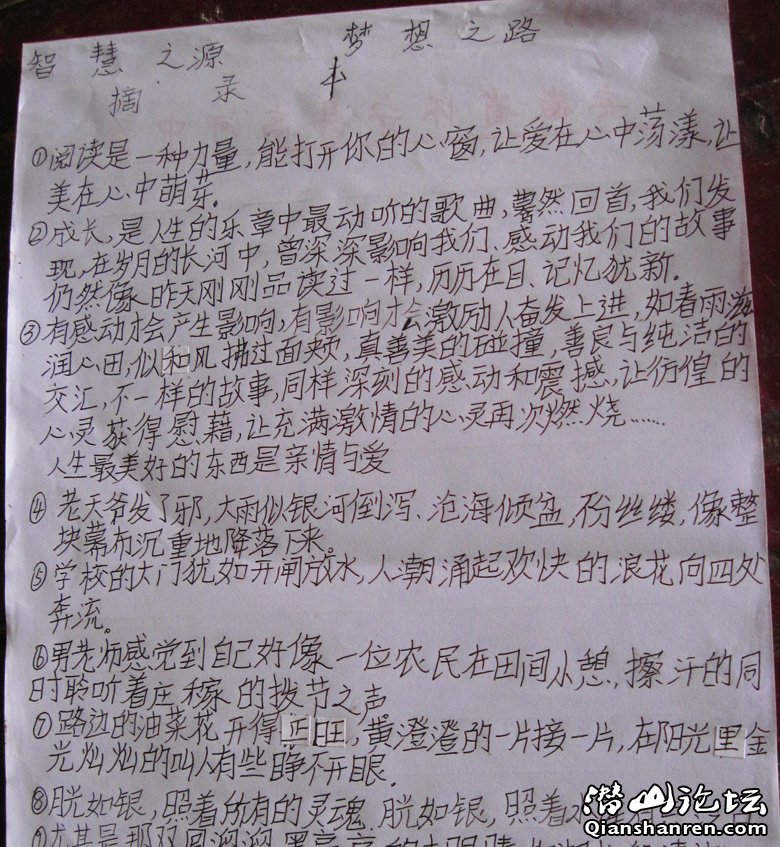 智慧之源 梦想之路
摘录本
①阅读是一种力量,能打开你的心窗,让爱在心中荡漾,让
美在心中萌芽。
②成长,是人生的乐章中最动听的歌曲,蓦然回首,我们发
现,在岁月的长河中,曾深深影响我们、感动我们的故事
仍然像昨天刚刚品读过一样,历历在目、记忆犹新。
③有感动才会产生影响,有影响才会激励人奋发上进,如春雨滋
润心田,似和风拂过面颊,真善美的碰撞,善良与纯洁的
交汇,不一样的故事,同样深刻的感动和震撼,让彷徨的
心灵获得慰藉,让充满激情的心灵再次燃烧……
人生最美好的东西是亲情与爱
④老天爷发了邪,大雨似银河倒泻、沧海倾盆,不分丝缕,像整
块幕布沉重地降落下来。
⑤学校的大门犹如开闸放水,人潮涌起欢快的浪花向四处
奔流。
⑥男老师感觉到自己好像一位农民在田间小憩,擦汗的同
时聆听着庄稼的拨节之声
⑦路边的油菜花开得正旺,黄澄澄的一片接一片,在阳光里金
光灿灿的叫人有些睁不开眼.
⑧胱如银,照着所有的灵魂.胱如银,照着
尤其是那双
潜山论坛
Qianshanren.com